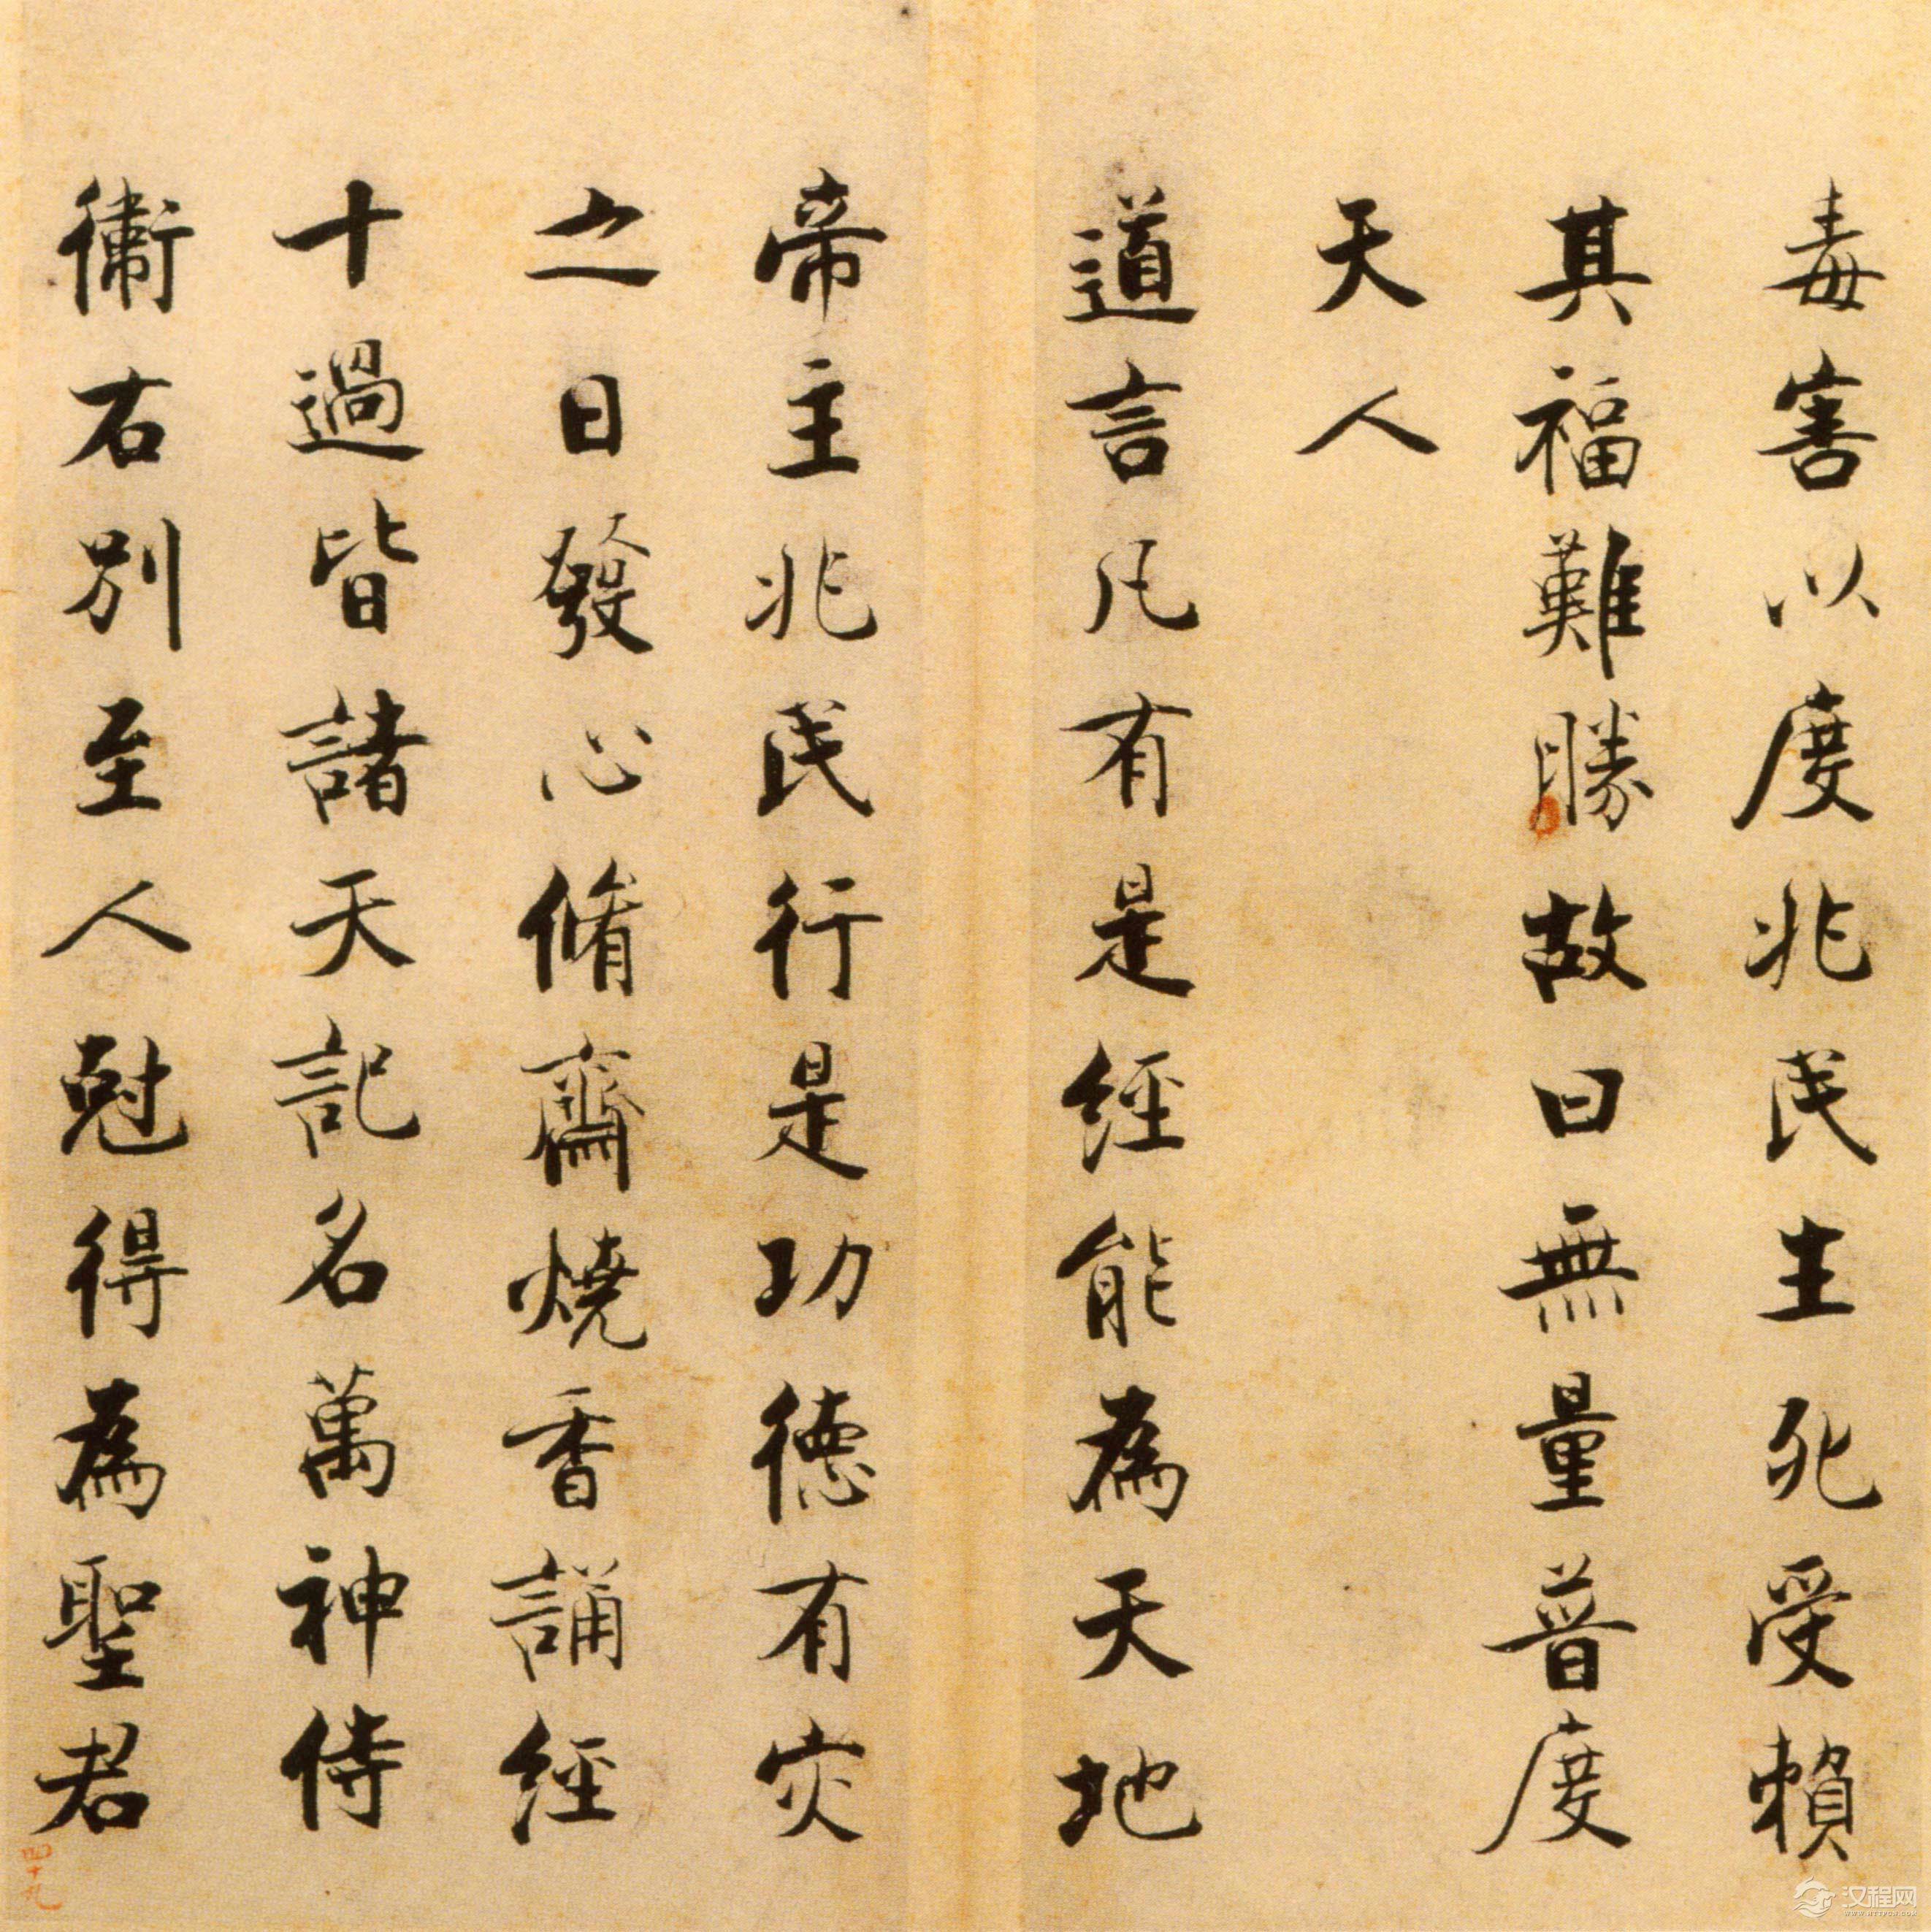 毒害以度兆民生死受賴
其福難勝故曰無量普度
天人
道言凡有是經能為天地
帝主兆民行是功德有灾
之日發心脩齋燒香誦經
十過皆諸天記名萬神侍
衛右別至人尅得為聖君
四十九
汉程网
www.httpcn.com